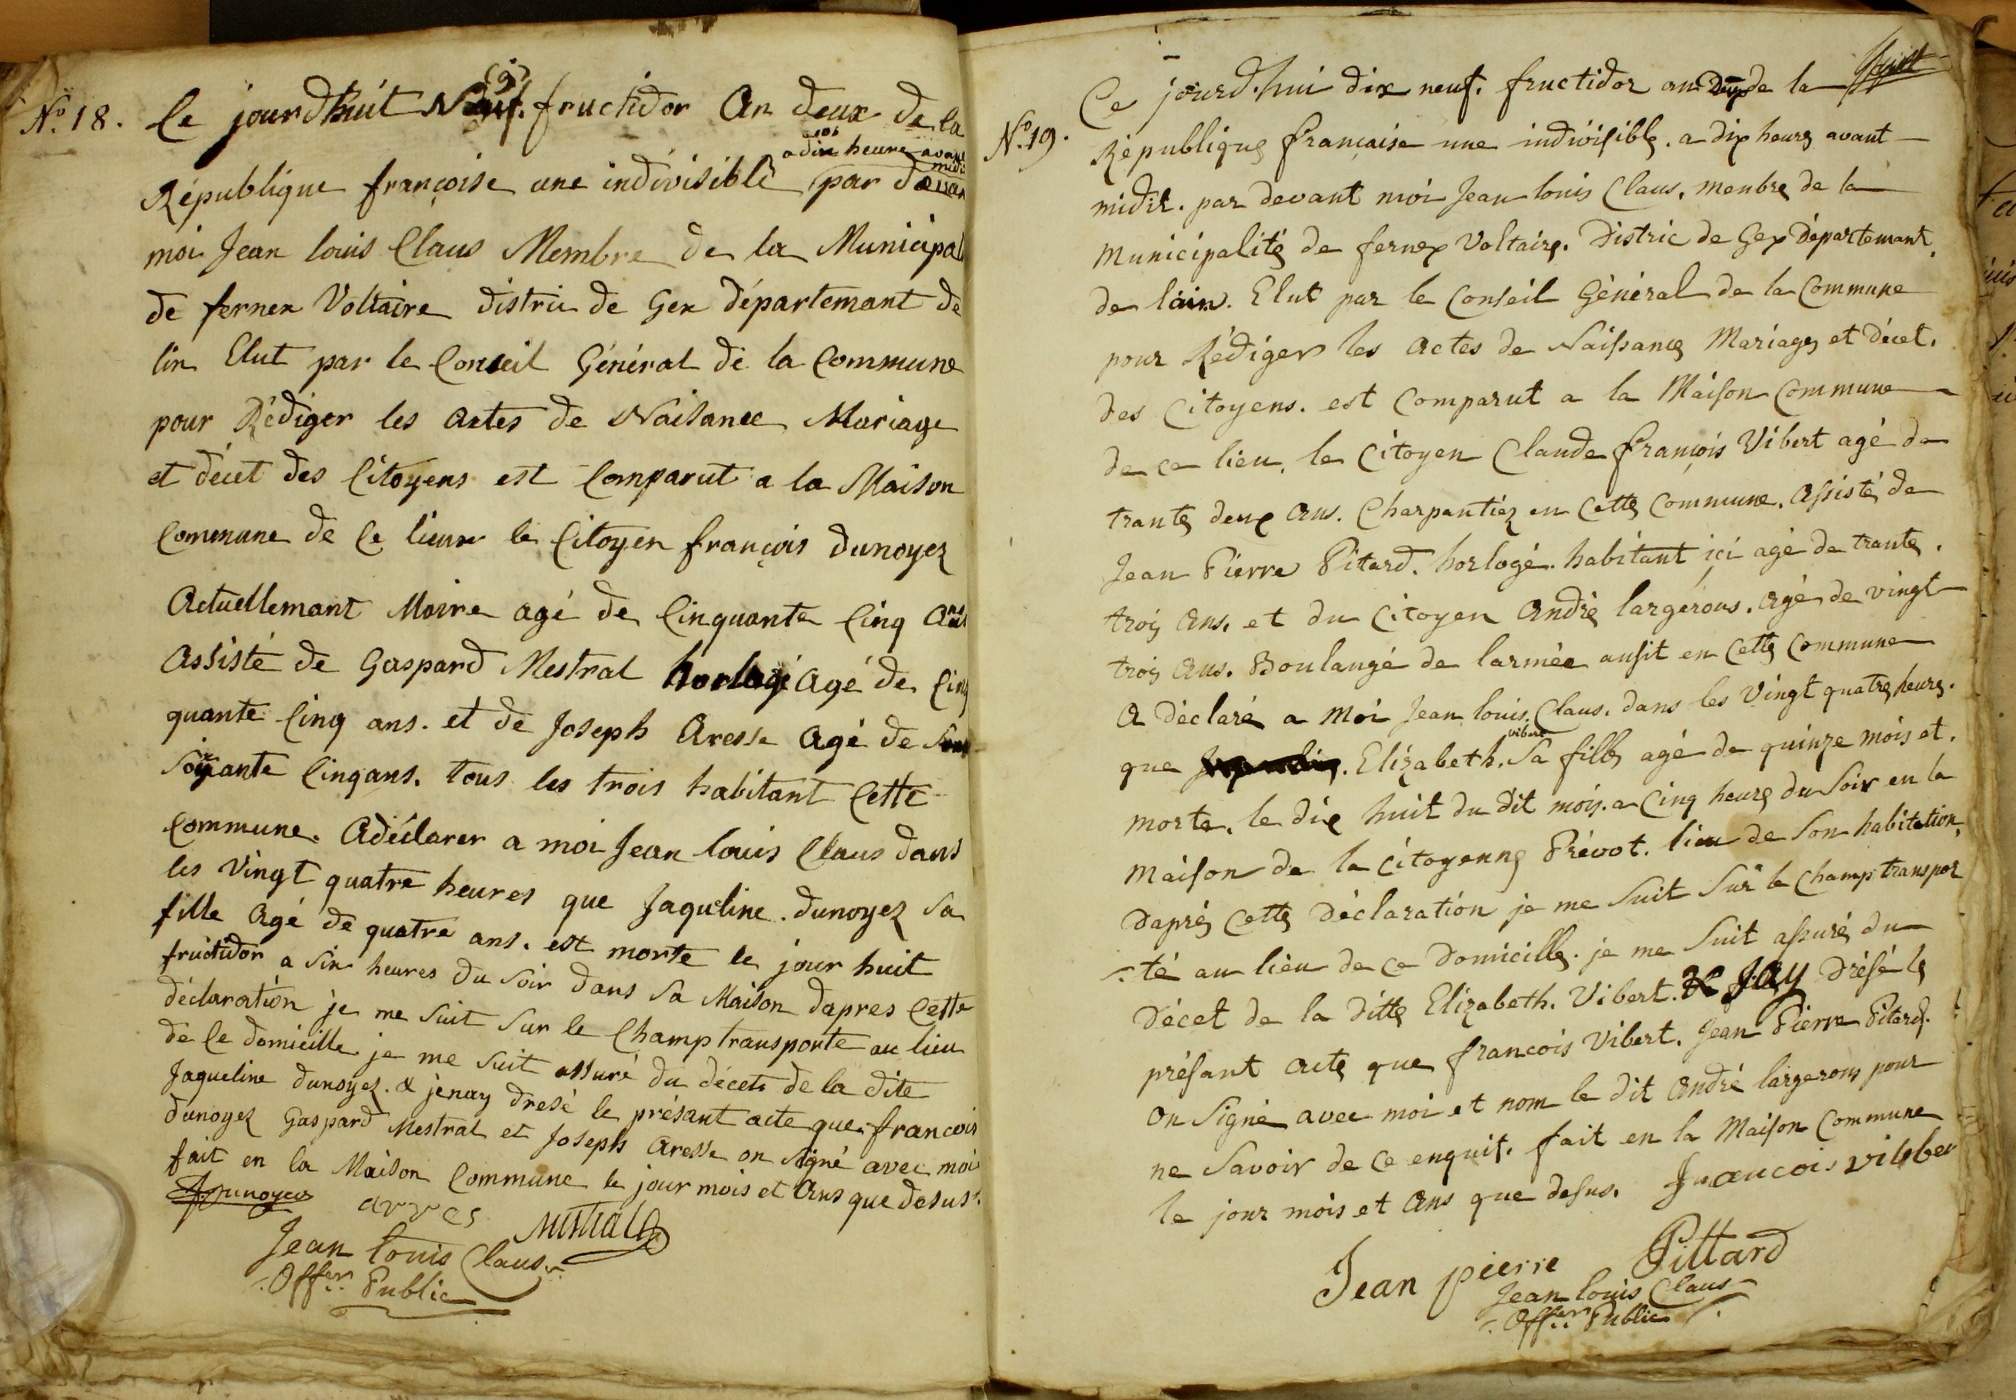 N.º 18.
Ce jourdhuit Neuf (9) fructidor An deux de la
République françoise une indivisible a dix heure avant midi par devan
moi Jean louis Claus Membre de la Municipal
de fernex Voltaire distric de Gex département de
lin Elut par le Conseil Général de la Commune
pour Rédiger les actes de Naisance Mariage
et décet des Citoyens est Comparut a la Maison
Commune de Ce lieux le Citoyen françois dunoyez
Actuellemant Maire agé de Cinquante Cinq Ans
Assisté de Gaspard Mestral horlogé Agé de Cinq
quante Cinq ans. et de Joseph Aresse Agé de
Soixante Cinq ans. tous les trois habitant Cette
Commune. Adéclarer a moi Jean louis Claus dans
les Vingt quatre heures que Jaqueline. dunoyez Sa
fille Agé de quatre ans. est morte le jour huit
fructidor a Six heures du Soir dans Sa Maison dapres Cette
déclaration je me Suit Sur le Champ transporte au lieu
de Ce domicille je me Suit assuré du décets de la dite
Jaqueline dunoyez. & jenay dresé le présant acte que francois
dunoyez Gaspard Mestral et Joseph Aresse on Signé avec moi
fait en la Maison Commune le jour mois et Ans que desus.
fdunoyer arres Mistral
Jean louis Claus
Off.er Public
N.º 19.
Ce jourd'hui dix neuf. fructidor an Deux de la
République francaise une indivisible. a dix heures avant
midit. par devant moi Jean louis Claus. menbre de la
Municipalité de fernex Voltaire. Distric de Gex Département.
de lain. Elut par le Conseil Général de la Commune
pour Rédiger les actes de Naissance Mariages et décet.
des Citoyens. est Comparut a la Maison Commune
de ce lieu, le Citoyen Claude françois Vibert agé de
trante deux ans. Charpantiez en Cette Commune. Assisté de
Jean Pierre Pitard. horlogé. habitant ici agé de trante.
trois ans. et du Citoyen André largerous. agé de vingt
trois ans. Boulangé de larmée ausit en Cette Commune
a déclaré a Moi Jean louis Claus. dans les Vingt quatre heures.
que Elizabeth. vibert Sa fille agé de quinze mois et.
morte. le dix huit du dit mois. a Cinq heures du Soir en la
Maison de la Citoyenne Prévot. lieu de Son habitation,
Daprés Cette Déclaration je me Suit Sur le Champ transpor
té au lieu de ce Domicille. je me Suit assuré du
Décet de la ditte Elizabeth. Vibert. & Jay Drésé le
présant acte que francois Vibert. Jean Pierre Pitard.
on Signé avec moi et nom le dit André largerous pour
ne Savoir de ce enquit. fait en la Maison Commune
le jour mois et ans que desus. Francois vibber
Jean pierre Pittard
Jean louis Claus
Off.er Public